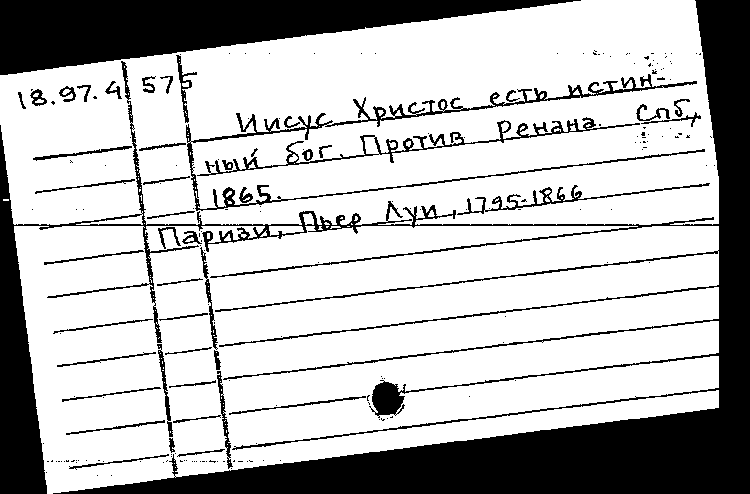 18.97.4 575
Иисус Христос есть истин-
ный бог. Против Ренана. Спб,
1865.
Паризи, Пьер Луи, 1795-1866